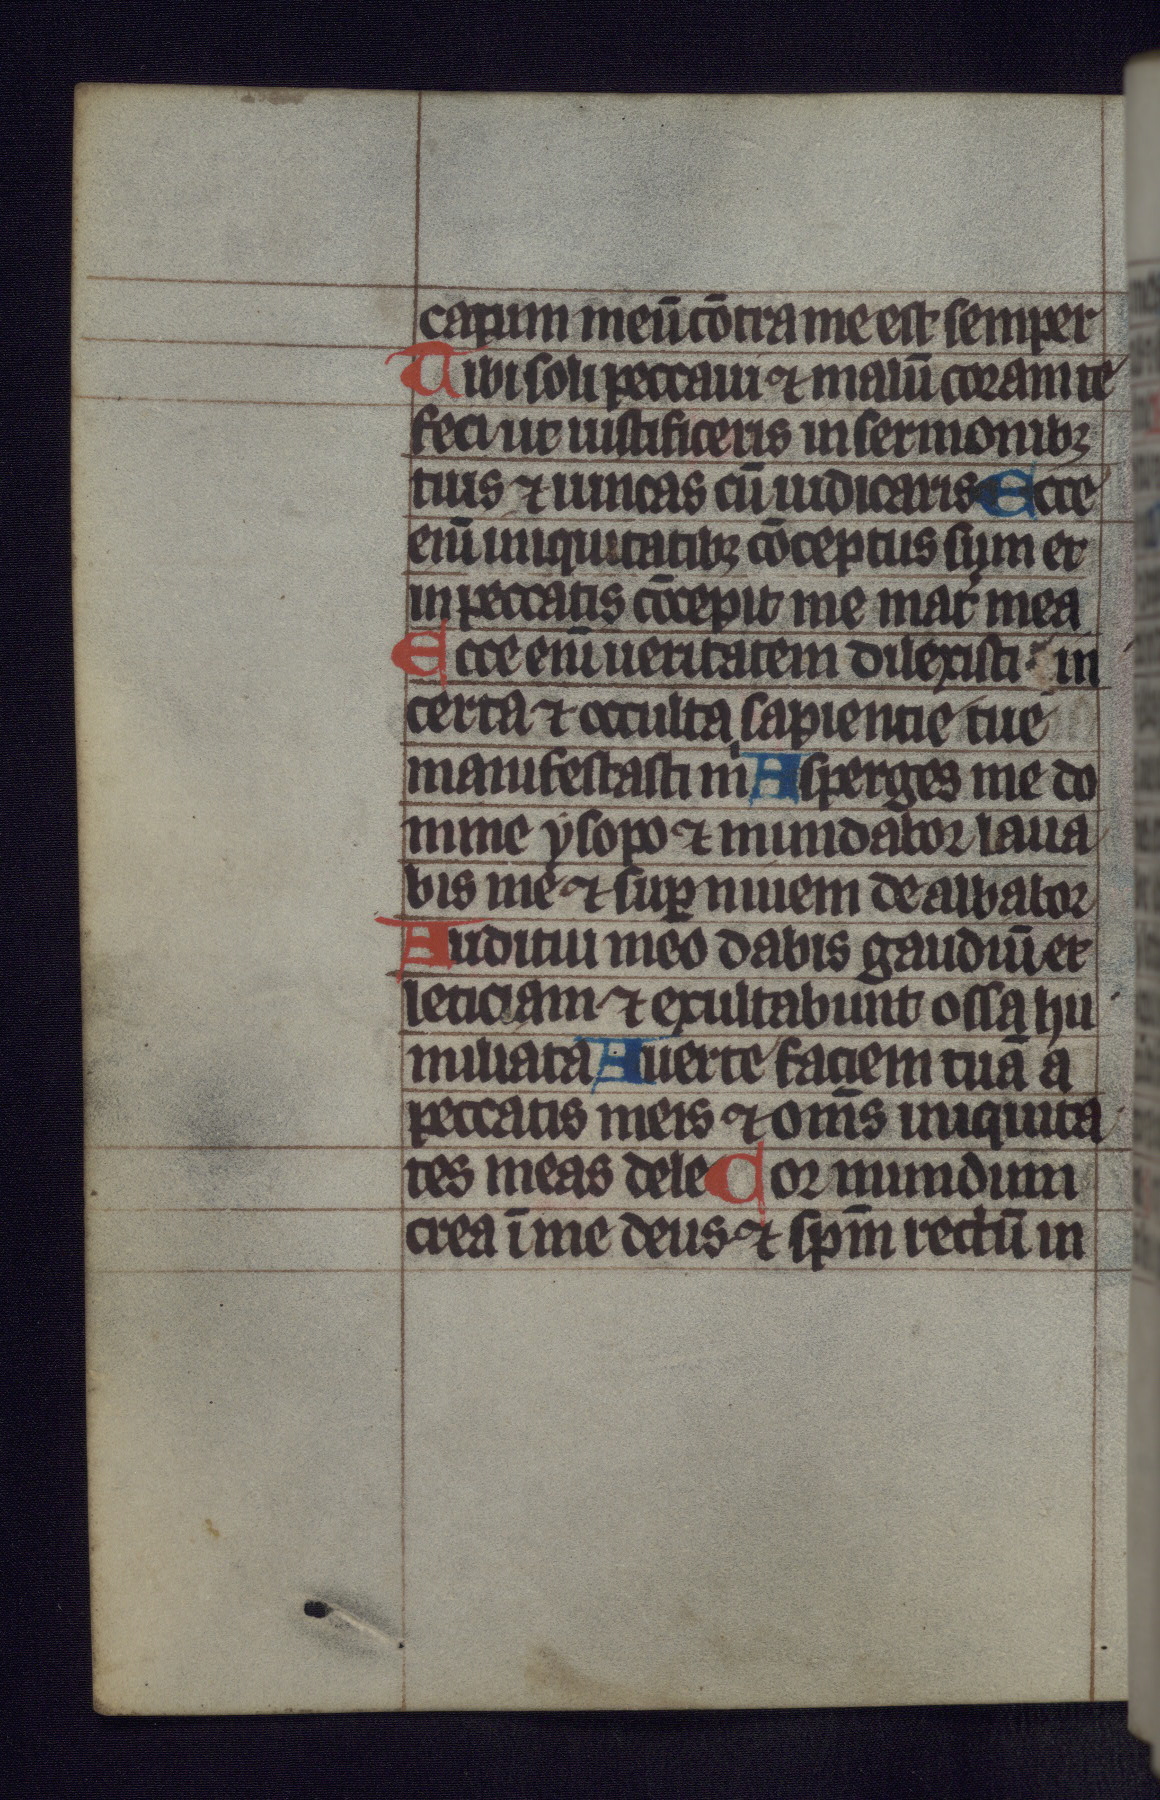 catum meū cōtra me est semper
Tibi soli peccaui ⁊ malū coram te
feci ut iustificeris in sermonibꝫ
tuis ⁊ uincas cū iudicaris Ecce
eni̅ iniquitatibꝫ cōceptus sum et
in peccatis cōcepit me mat̄ mea
Ecce eni̅ ueritatem dilexisti in
certa ⁊ occulta sapientie tue
manifestasti m̅ Asperges me do
mine ysopo ⁊ mundabor laua
bis me ⁊ suꝑ niuem de albabor
Auditui meo dabis gaudiū et
leticiam ⁊ exultabunt ossa hu
miliata Auerte faciem tuā a
peccatis meis ⁊ om̅s iniquita
tes meas dele Cor mundum
crea ī me deus ⁊ sp̅m rectū in